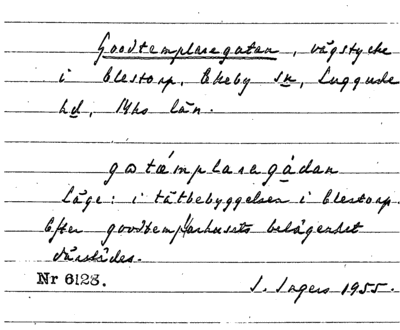 Goodtemplaregatan, vägstycke
i Elestorp, Ekeby sn, Luggude
hd, Mhs län.
gωtǽmplaragádan
Läge: i tätbebyggelsen i Elestorp.
Efter goodtemplarhusets belägenhet
därstädes.
Nr 6128. I. Ingers 1955.